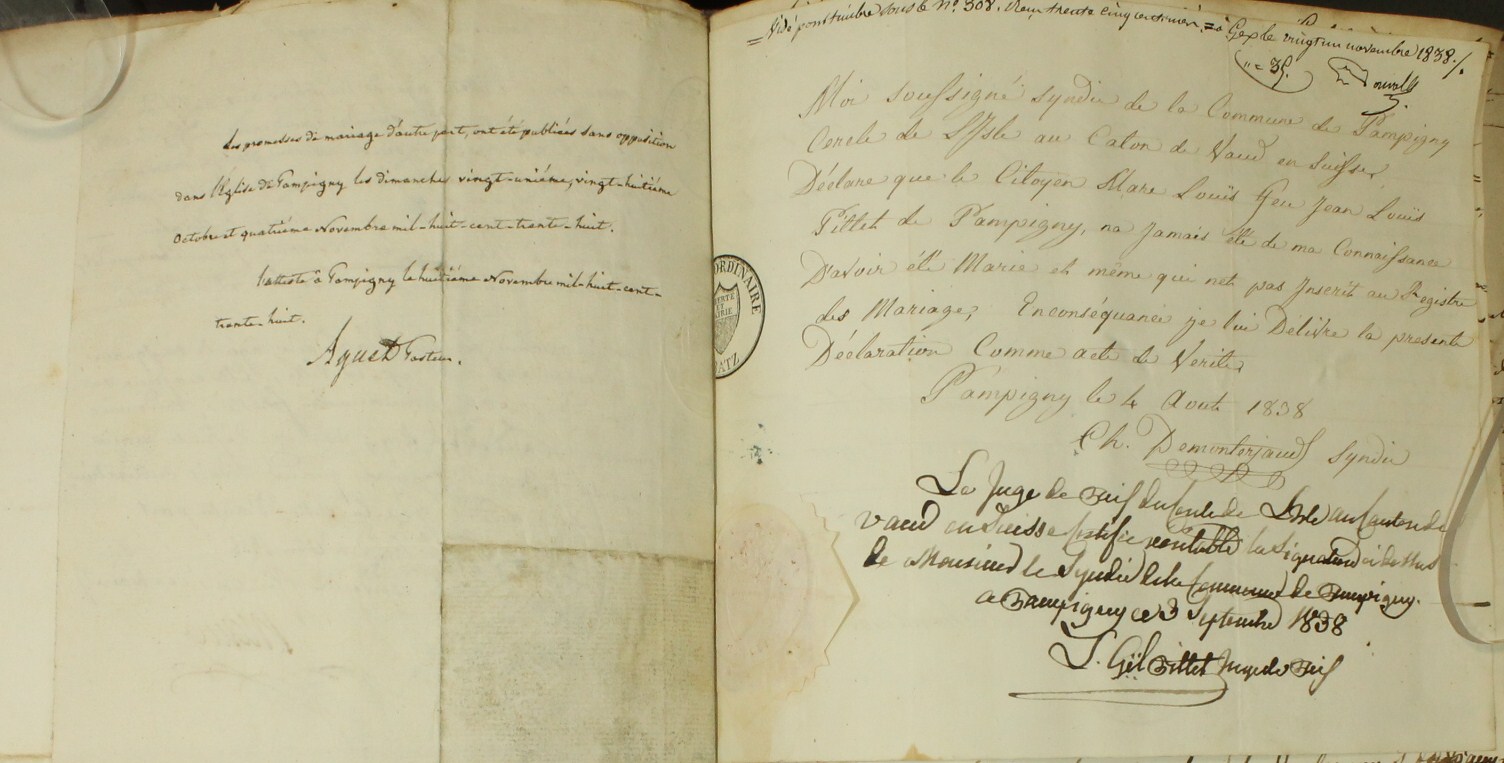 Les promesses de mariage d'autre part, ont été publiées sans opposition
dans l'Eglise de Pampigny les dimanches vingt-unième, vingt-huitième
Octobre et quatrième Novembre mil-huit-cent-trente-huit.
l'atteste à Pampigny le huitième Novembre mil-huit-cent-
trente-huit.
Aguet Pasteur.
ORDINAIRE
LIBERTÉ
ET
PATRIE
BATZ
Visé pour timbre sous le N° 308. Reçu trente cinq centimes = à Gex le vingt un novembre 1838 ./.
" = 35.
Moi soussigné syndic de la Commune de Pampigny
Cercle de L'Isle au Caton de Vaud en Suisse,
Déclare que le Citoyen Marc Louïs feu Jean Louïs
Pittet de Pampigny, na jamais été de ma Connaissance
D'avoir été Marié et même qui net pas Inscrit au Registre
des Mariage, Enconséquance je lui Délivre la presente
Déclaration Comme acte de Verité,
Pampigny le 4 Aout 1838
Ch. syndic
Le Juge de Paix du Cercle de L'Isle au Canton de
Vaud en Suisse Certifie veritable la signature ci dessus
de Monsieur le Syndic de la Commune de Pampigny.
a Pampigny ce 3 Septembre 1838
Pittet Juge de Paix